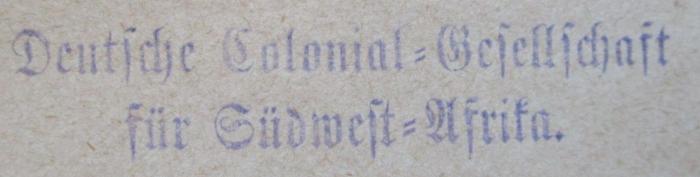 Deutsche Colonial-Gesellschaft
für Südwest-Afrika.